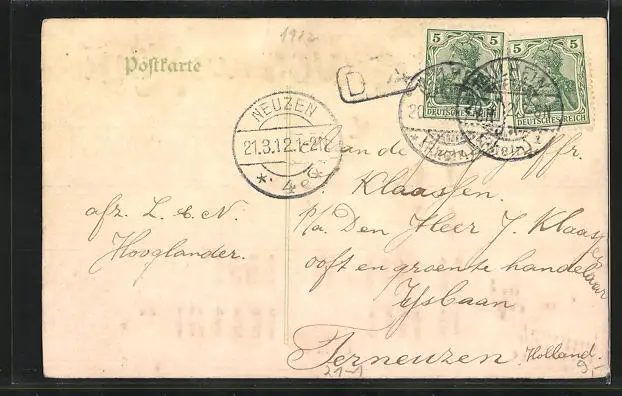 1912
Postkarte
5 5
5 5
DEUTSCHES REICH
DEUTSCHES REICH
D
NEUZEN
21.3.12.1-2N
* 4e *
Aan de Jffr.
Klaassen.
p/a. Den Heer J. Klaassen
ooft en groente handelaar
Ijsbaan
Terneuzen. Holland.
21-1
afz. L. & N.
Hooglander.